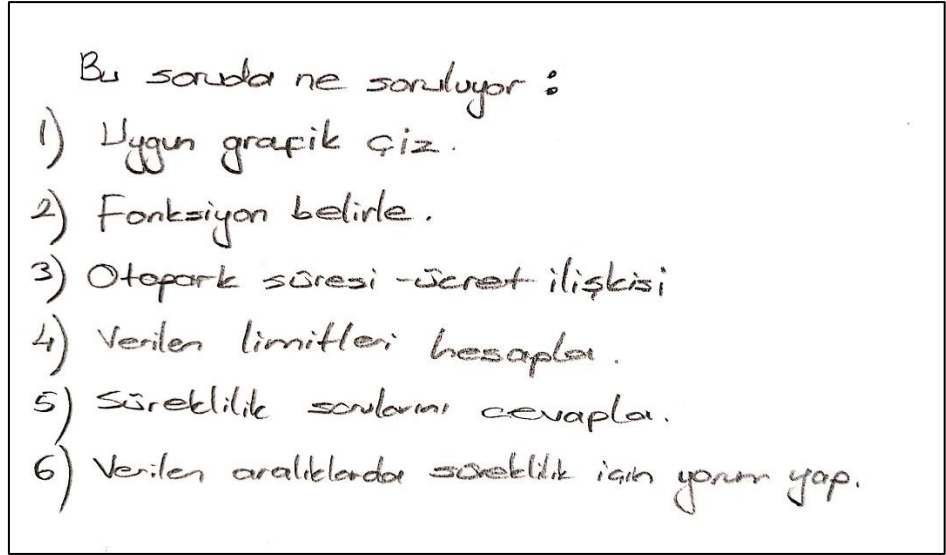 Bu soruda ne soruluyor :
1) Uygun grafik çiz.
2) Fonksiyon belirle.
3) Otopark süresi -ücret ilişkisi
4) Verilen limitleri hesapla.
5) Süreklilik sorularını cevapla.
6) Verilen aralıklarda süreklilik için yorum yap.